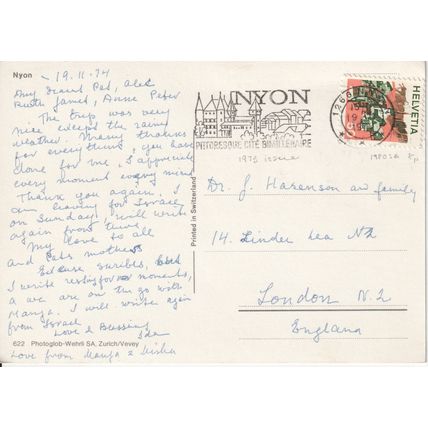 Nyon - 19.11.74
My dearest Pat, Alec
Ruth Janet, Anne Peter
The trip was very
nice except the rainy
weather. Many thanks
for everything you have
done for me, I appreciate
every moment every
Thank you again. I
am leaving for Israel
on Sunday, will write
again from there
My love to all
and Pats mother
I write
a we are on the go with
Manya. I will write again
from Israel
Love & Blessing
Ida
622 Photoglob-Wehrli SA, Zurich/Vevey
Love from Manya & Misha
Printed in Switzerland
NYON
PITTORESQUE CITÉ BIMILLÉNAIRE
1260 NYON
HELVETIA
1973 issue
Dr. J. Harenson and family
14. Linden Lea N2
London N.2
England